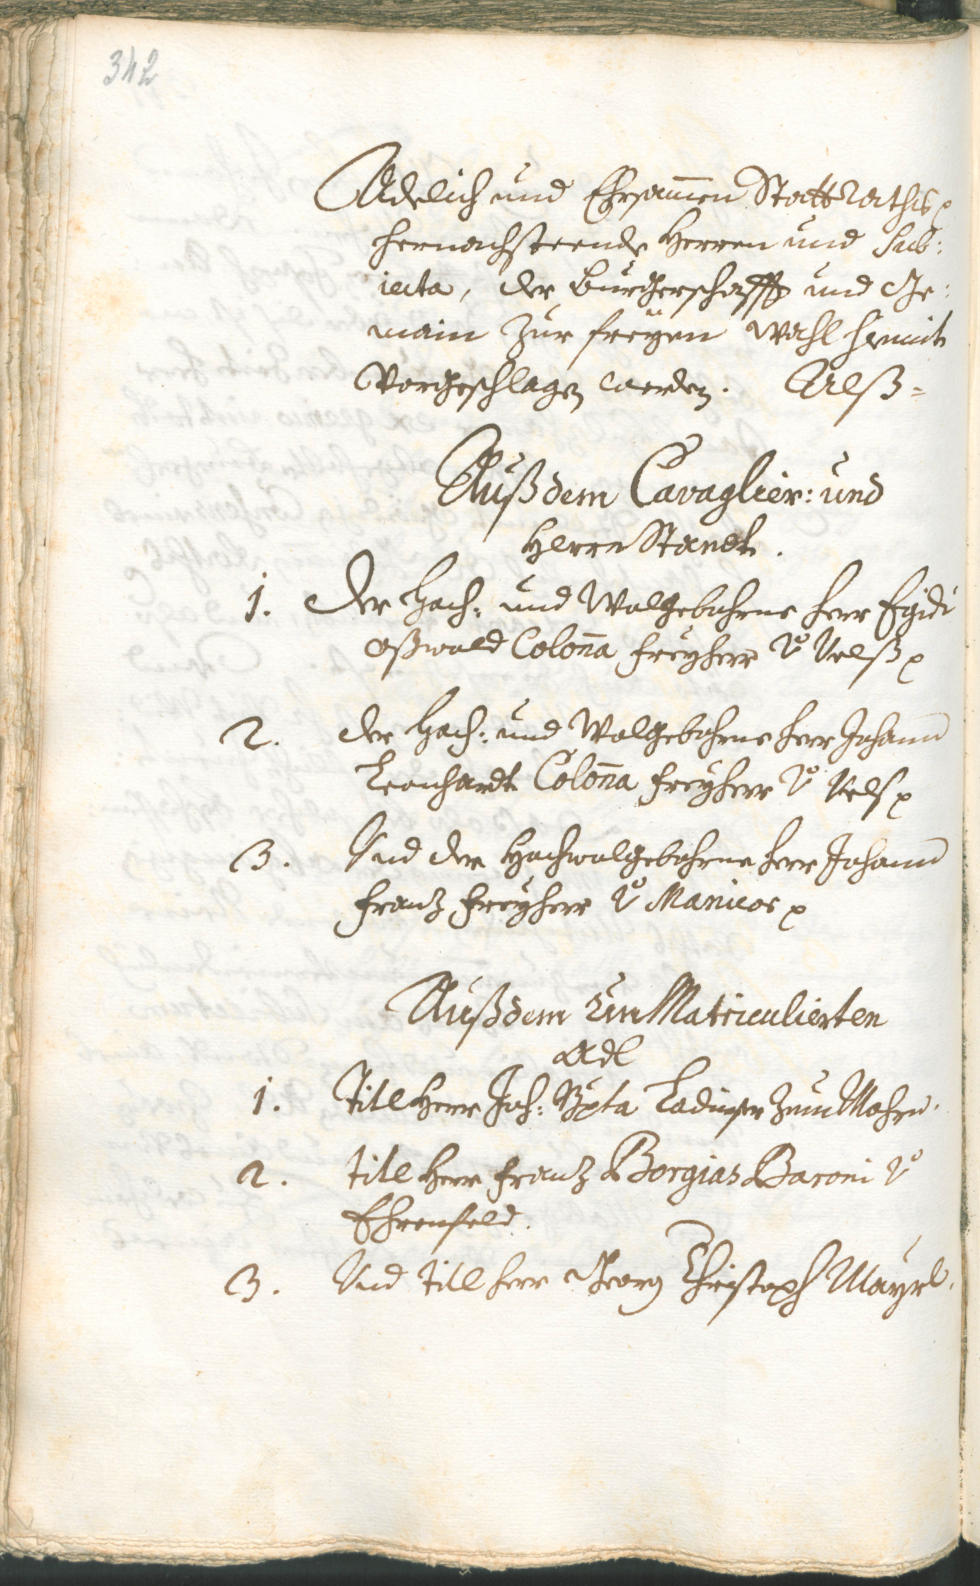 342
Adelich und Ehrsammen Statt Raths p
hernachsteende Herren und Sub:
iecta, der Burgerschafft und Ge:
main zur freyen Wahl hiemit
Vorgeschlagen werden. Alß=
Auß dem Cavaglier: und
Herrn Standt.
1. Der Hoch: und Wolgebohrne Herr Egidi
Oßwald Colona Freyherr v Velß p
2. der Hoch: und Wolgebohrne Herr Johann
Leonhardt Colona Freyherr v Vels p
3. Und der Hochwolgebohrne Herr Johann
Franz Freyherr v Manicor p
Auß dem Im Matriculierten
Adl
1. Titl Herr Joh: Bpta Ladinser zum Mohrn.
2. titl Herr Franz Borgias Baroni v
Ehrenfeld.
3. Und titl Herr Georg Christoph Mayrl.